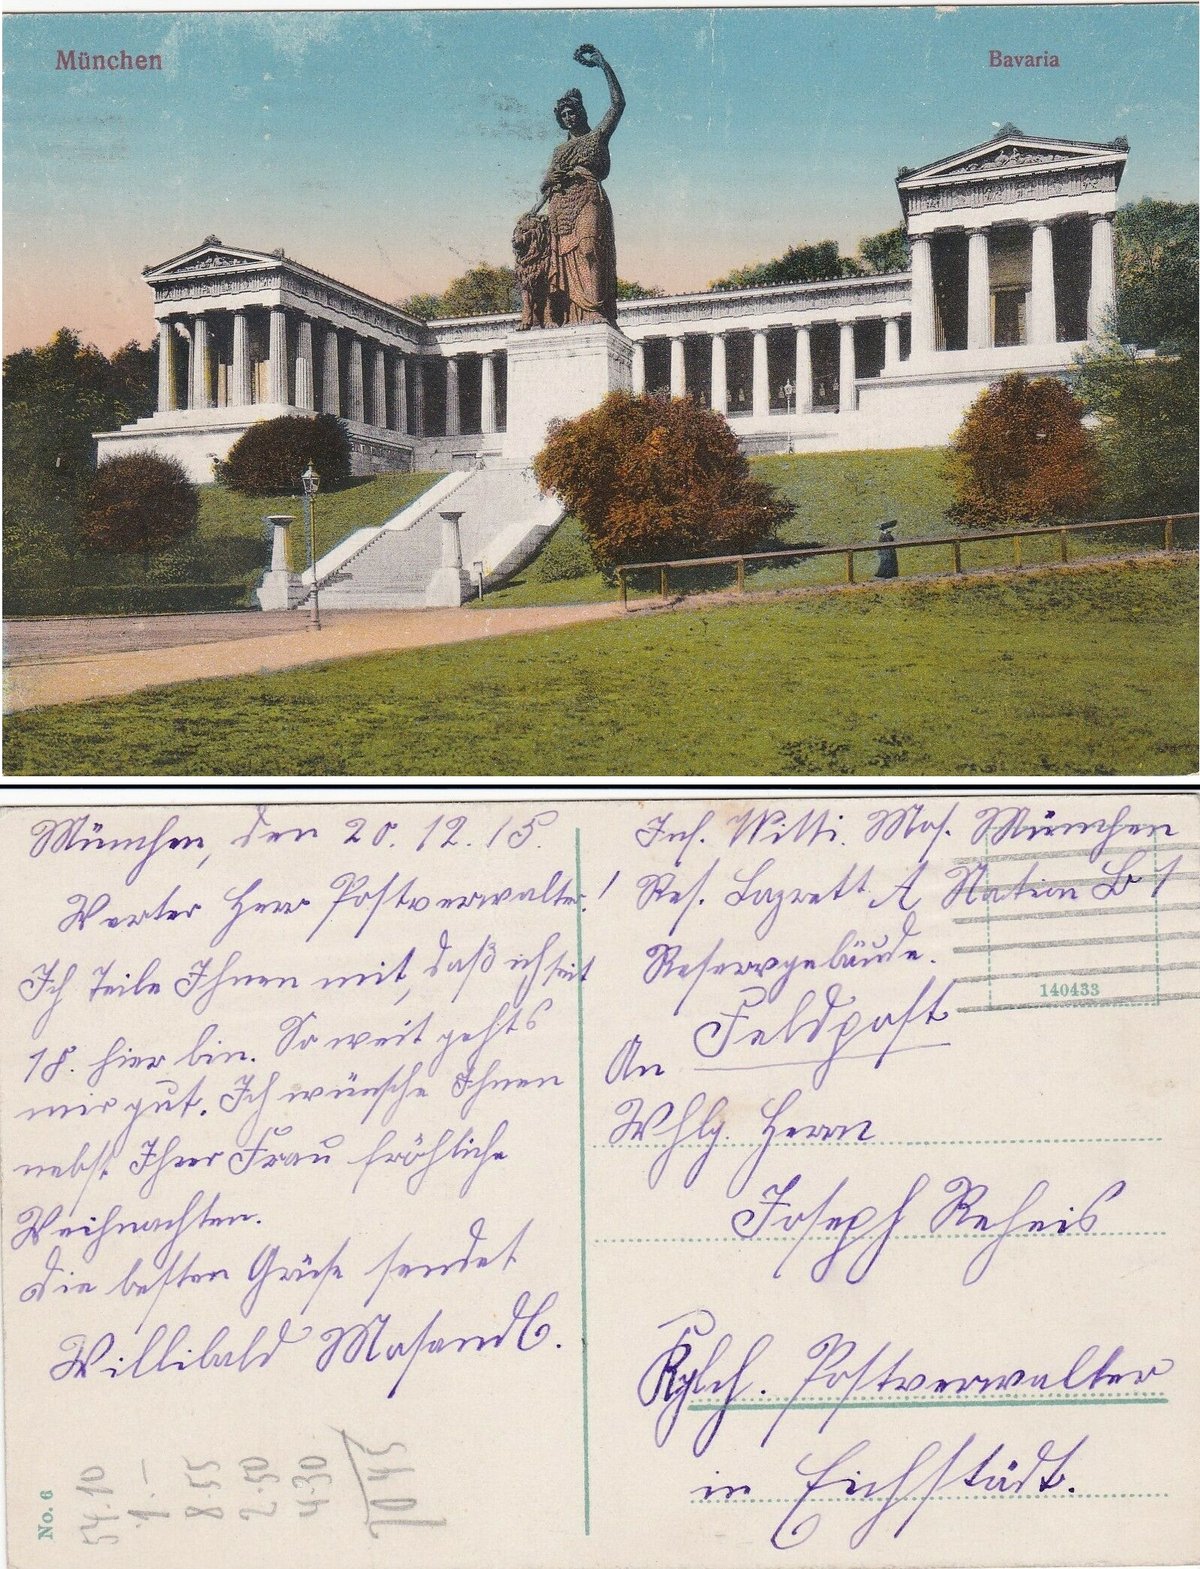 München
Bavaria
München, den 20. 12. 15.
Werter Herr Postverwalter!
Ich Teile Ihnen mit, daß ich seit
18. hier bin. So weit gehts
mir gut. Ich wünsche Ihnen
nebst Ihrer Frau fröhliche
Weihnachten.
Die besten Grüße sendet
Willibald Mosandl.
No. 6
54.10
1.-
8 55
2.50
4.30
70 45
Inf. Willi. Mos. München
Res. Lazrett A Station B 1
Reservgebäude.
140433
Feldpost
An
Whlg. Herrn
Joseph Reheis
Kglch. Postverwalter
in Eichstädt.